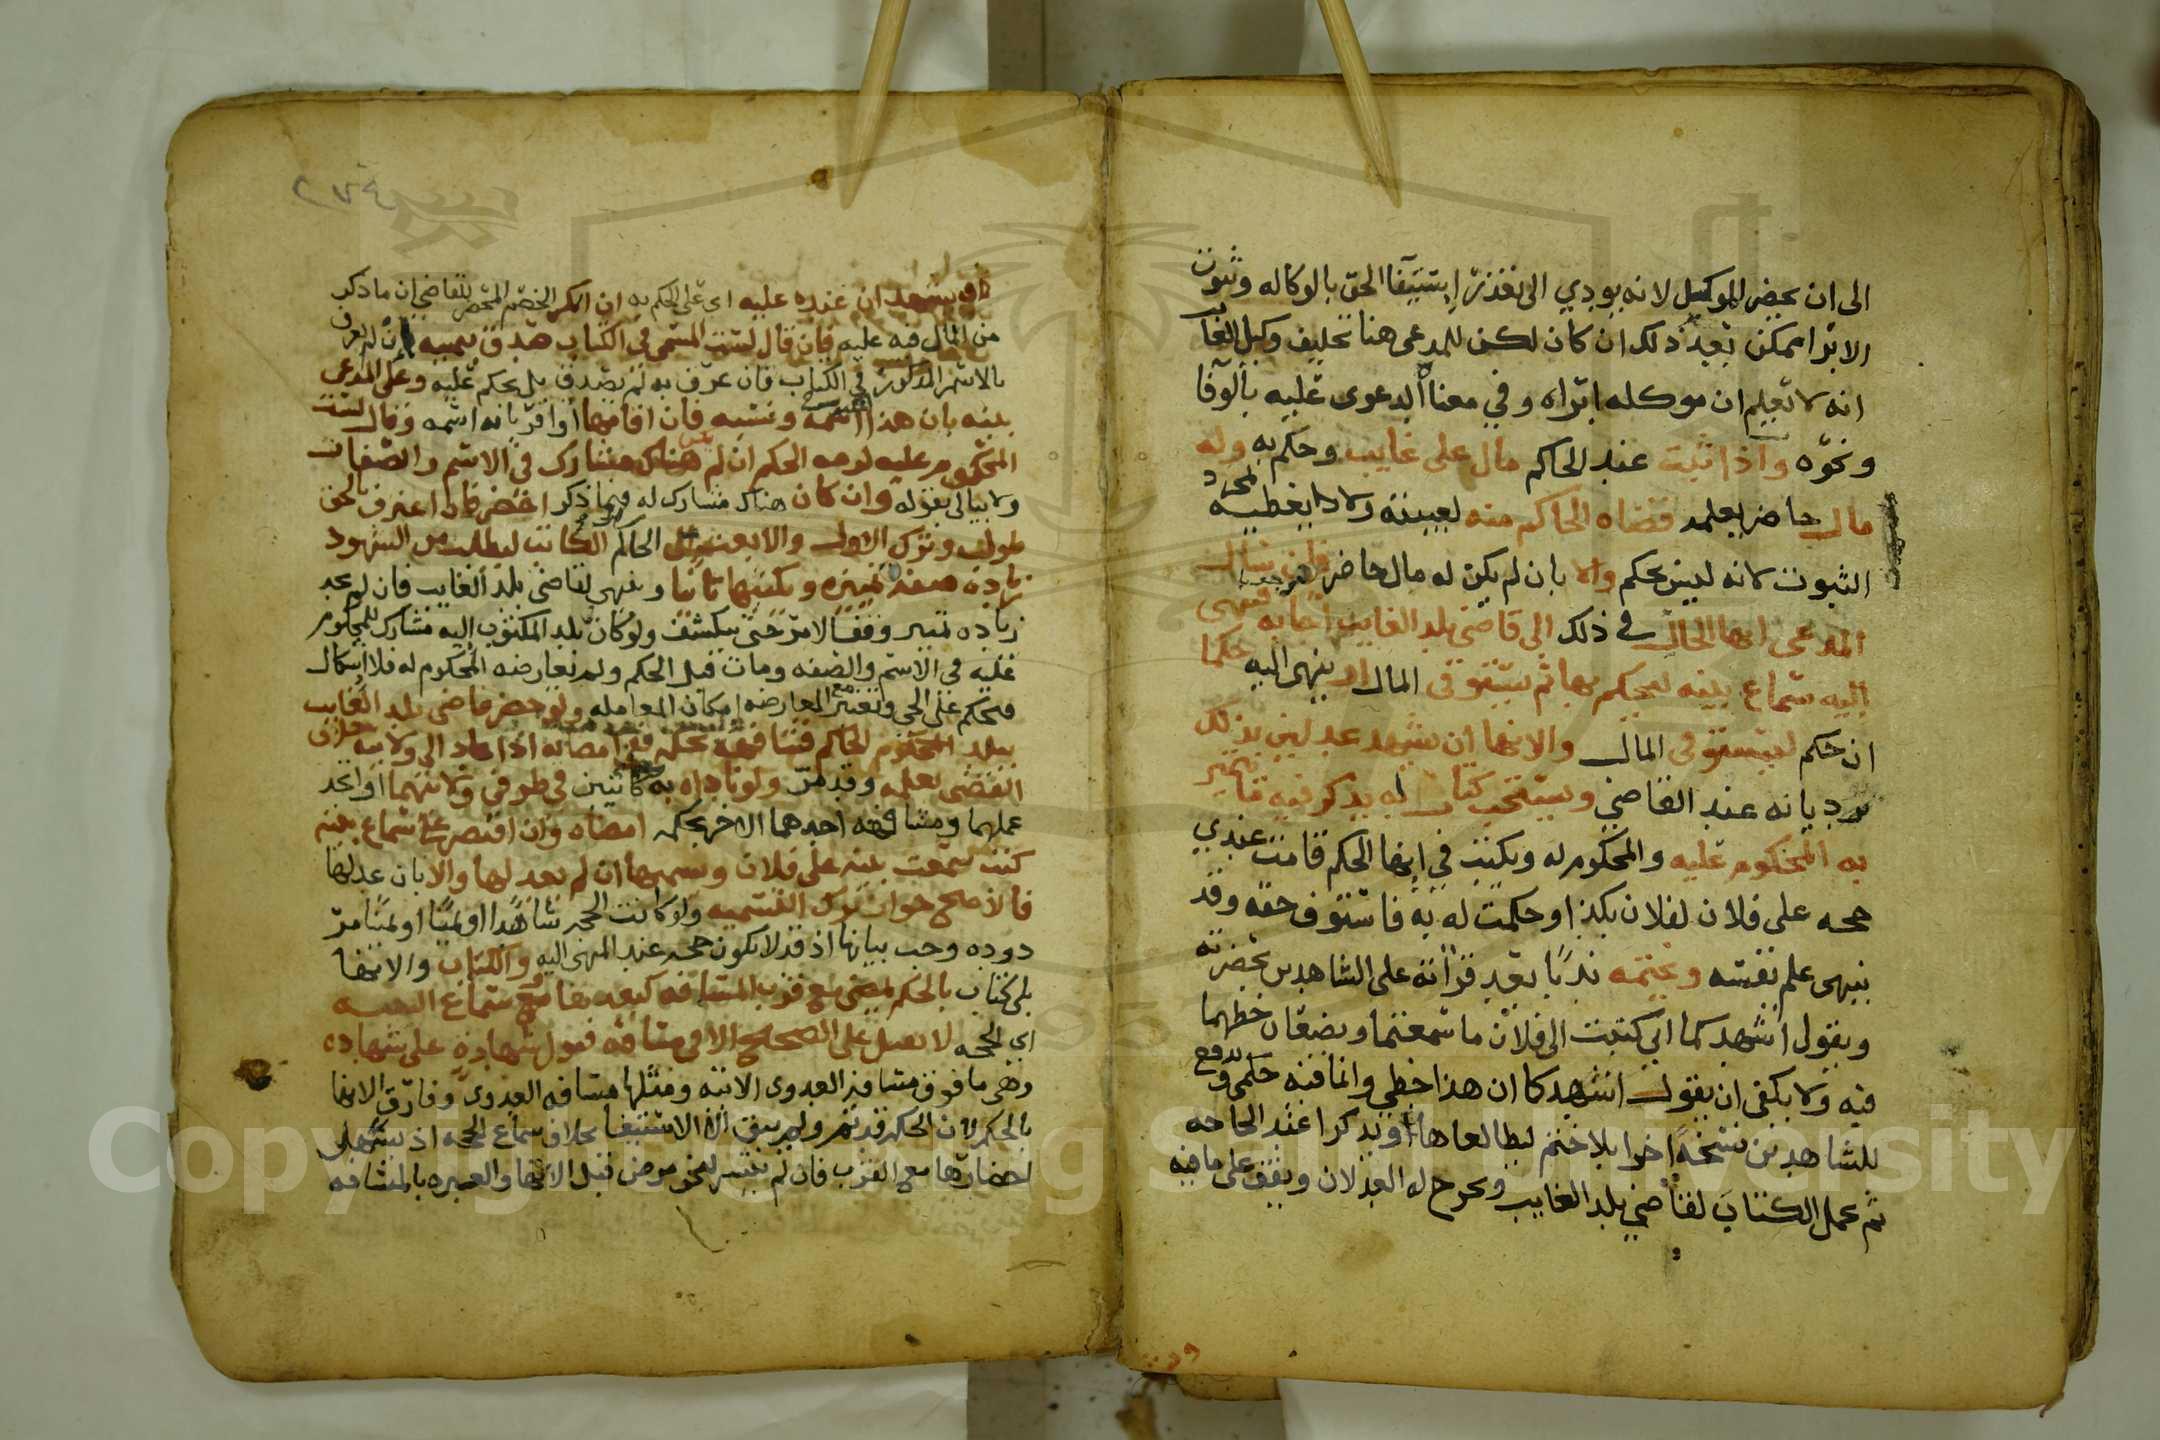 الى ان يحضر الموكيل لانه يودي الى تعذر استيفا الحق بالوكاله وثبوت
الابرا ممكن بعد ذلك ان كان لكن للمدعى هنا تحليف وكيل الغايب
انه لا يعلم ان موكله ابراه وفي معنا الدعوى عليه بالوفا
ونحوه واذا ثبت عند الحاكم مال على غايب وحكم به وله
مال حاضر بعلمه قضاه الحاكم منه لغيبته ولا يعطيه لمجرد
الثبوت لانه ليس بحكم والا بان لم يكن له مال حاضر فان سال
المدعى انها الحال في ذلك الى قاضي بلد الغايب اجابه فينهى
اليه سماع بينه ليحكم بها ثم يستوفى المال او ينهى اليه حكما
ان حكم ليستوفى المال والانها ان يشهد عدلين بذلك
يوديانه عند القاضي ويستحب كتاب له يذكر فيه ما يتميز
به المحكوم عليه والمحكوم له ويكتب في انها الحكم قامت عندي
حجه على فلان لفلان بكذا وحكمت له به فاستوف حقه وقد
ينهى علم نفسه ويختمه ندبا بعد قراته على الشاهدين بحضرته
ويقول اشهدكما اني كتبت الى فلان ما سمعتما ويضعان خطهما
فيه ولا يكفى ان يقول اشهدكما ان هذا خطي وانما فيه حكمي ويدفع
للشاهدين نسخة اخرا بلا ختم ليطالعاها ويذكرا عند الحاجه
ثم عمل الكتاب لقاضي بلد الغايب ويخرج له العدلان ويقف على ما فيه
٢٧٤
يشهدان عنده عليه اى على الحكم به ان انكر الخصم المحضر للقاضي ان ما ذكر
من المال فيه عليه فان قال لست المسمى في الكتاب صدق بيمينه ان لم يعرف
بالاسم المذكور في الكتاب فان عرف به لم يصدق بل يحكم عليه وعلى المدعى
بينه بان هذا اسمه ونسبه فان اقامها او اقر بانه اسمه وقال لست
المحكوم عليه لزمه الحكم ان لم يكن هناك مشارك في الاسم والصفات
ولا يبالى بقوله وان كان هناك مشارك له فيما ذكر احضر فان اعترف بالحق
طولب وترك الاول والا بعث الحاكم الكاتب ليطلب من الشهود
زيادة صفة تميزه ويكتبها ثانيا وينهى لقاضي بلد الغايب فان لم يجد
زياده تميز وقف الامر حتى ينكشف ولو كان ببلد المكتوب اليه مشارك للمحكوم
عليه في الاسم والصفه ومات قبل الحكم ولم تعارضه المحكوم له فلا اشكال
فيحكم على الحي ويعتبر مع المعارضه امكان المعامله ولو حضر قاضي بلد الغايب
ببلد الحاكم فشافهه بحكمه ففي امضائه اذا عاد الى ولايته خلاف
القضى بعلمه وقد مر ولو ناداه به كائنين في طرفي ولايتهما او اتحد
عملهما وشافه احدهما الاخر بحكمه امضاه وان اقتصر على سماع بينه
كتب سمعت بينه على فلان ويسميها ان لم يعدلها والا بان عدلها
فالاصح جواز ترك التسميه ولو كانت الحجه شاهدا او يمينا مر
دوده وجب بيانها اذ قد لا يكون حجه عند المنهى اليه والكتاب والانها
بلى كتاب بالحكم يمضى مع قرب المسافه كبعدها مع سماع البينه
اي الحجه لا يعمل على الصحيح الا في مسافة قبول شهادة على شهاده
وهي ما فوق مسافة العدوى الاتيه ومثلها مسافه العدوى وفارق الانها
بالحكم لان الحكم قد تم ولم يبق الا الاستيفا بخلاف سماع الحجه اذ يسهل
احضارها مع القرب فان لم يتيسر لنحو مرض قبل الانها والعبره بالمسافه